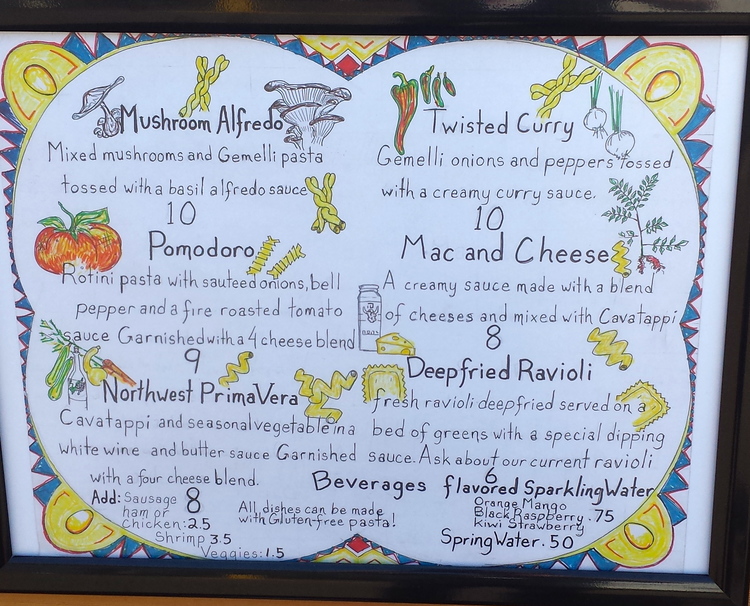 Mushroom Alfredo
Mixed mushrooms and Gemelli pasta
tossed with a basil alfredo sauce
10
Pomodoro
Rotini pasta with sauteed onions, bell
pepper and a fire roasted tomato
sauce Garnished with a 4 cheese blend
9
Northwest PrimaVera
Cavatappi and seasonal vegetable in a
white wine and butter sauce Garnished
with a four cheese blend.
8
Add: Sausage
ham or
chicken: 2.5
Shrimp 3.5
Veggies: 1.5
All dishes can be made
with Gluten-free pasta!
Twisted Curry
Gemelli onions and peppers tossed
with a creamy curry sauce.
10
Mac and Cheese
A creamy sauce made with a blend
of cheeses and mixed with Cavatappi
8
Deepfried Ravioli
fresh ravioli deepfried served on a
bed of greens with a special dipping
sauce. Ask about our current ravioli
6
Beverages flavored Sparkling Water
Orange Mango
Black Raspberry .75
Kiwi Strawberry
Spring Water .50